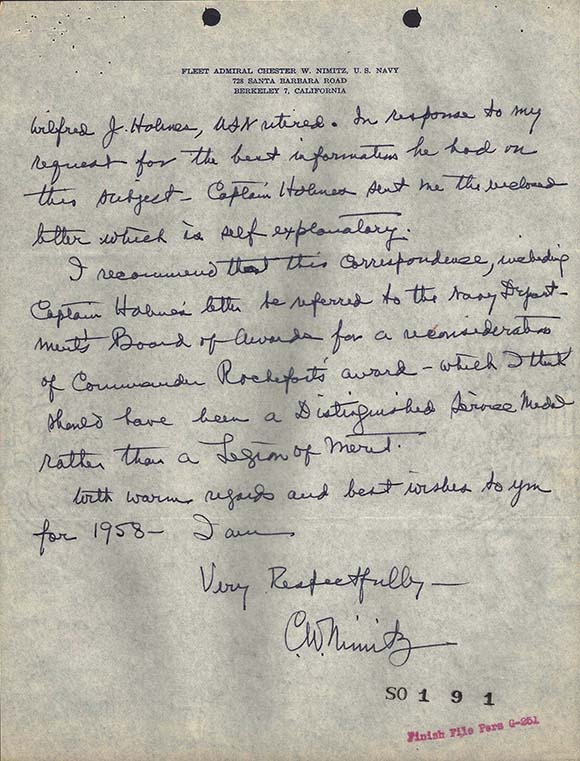 FLEET ADMIRAL CHESTER W. NIMITZ, U. S. NAVY
728 SANTA BARBARA ROAD
BERKELEY 7, CALIFORNIA
Wilfred J. Holmes, USN retired. In response to my
request for the best information he had on
this subject - Captain Holmes sent me the inclosed
letter which is self explanatory.
I recommend that this correspondence, including
Captain Holmes' letter be referred to the Navy Depart-
ment's Board of Awards for a reconsideration
of Commander Rochefort's award - which I think
should have been a Distinguished Service Medal
rather than a Legion of Merit.
With warm regards and best wishes to you
for 1958 - I am
Very Respectfully -
C.W. Nimitz
SO 1 9 1
Finish File Pers G-251